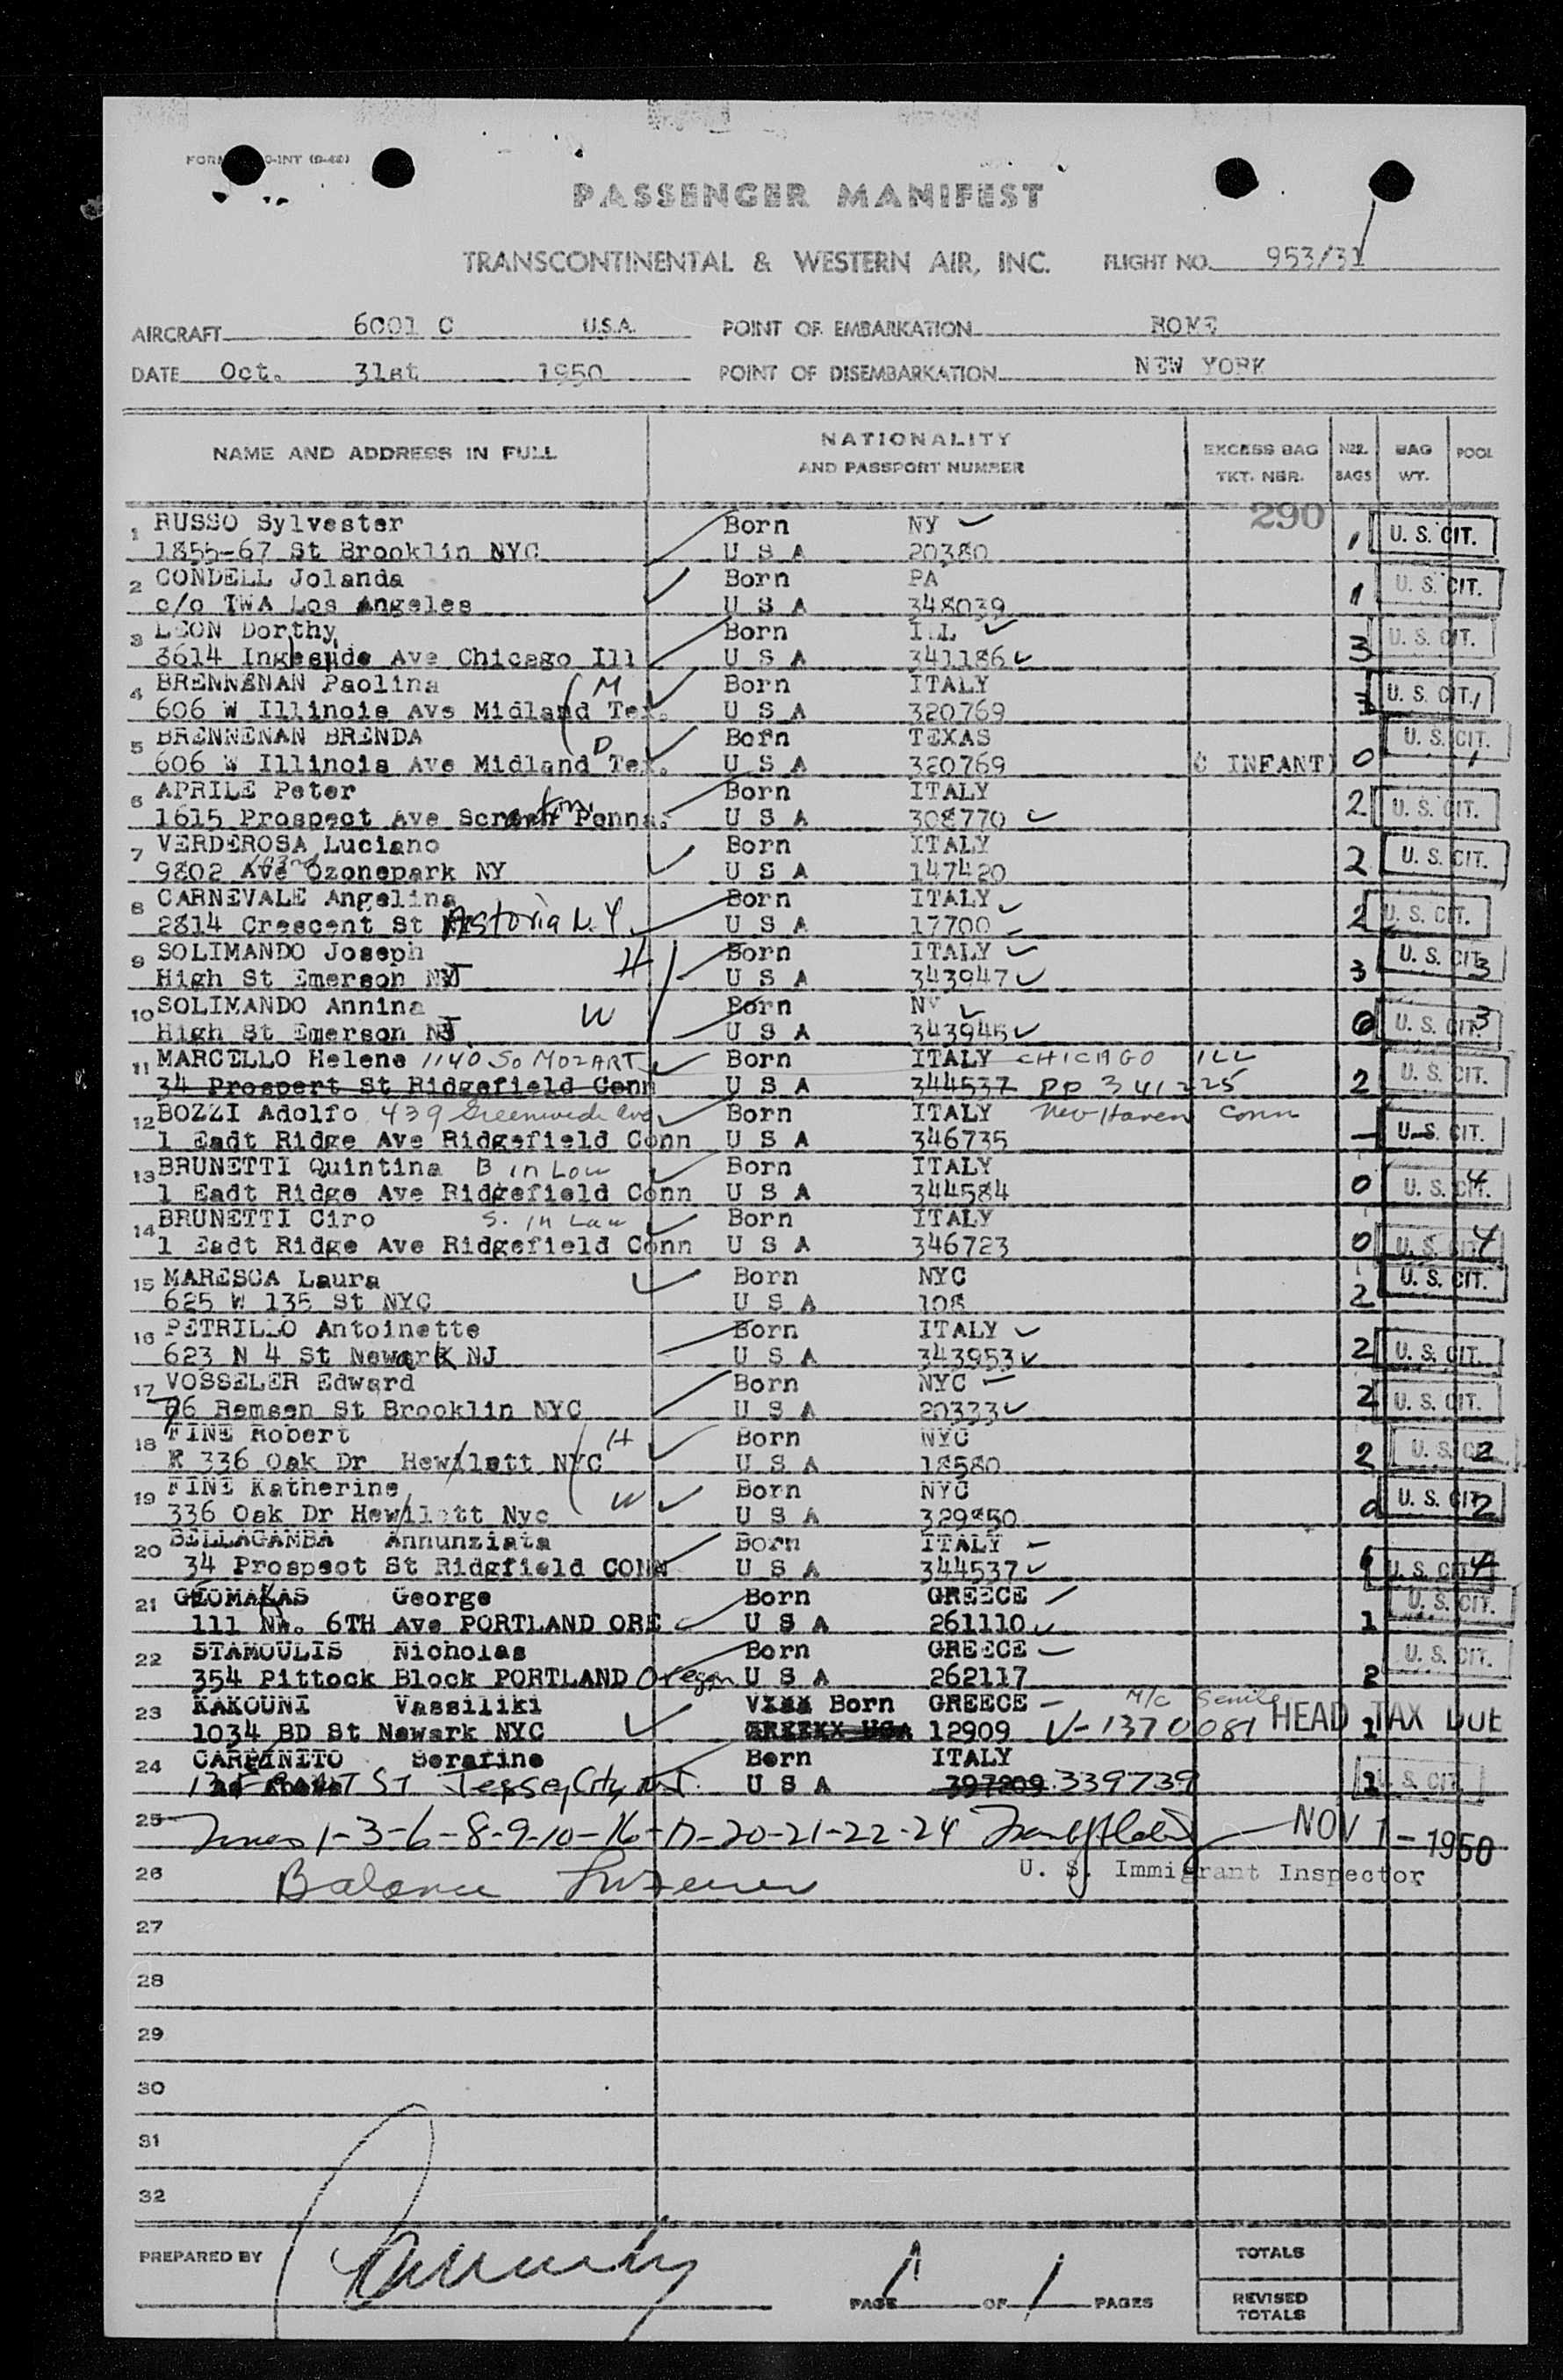 PASSENGER MANIFEST
TRANSCONTINENTAL & WESTERN AIR, INC. FLIGHT NO. 953/31
AIRCRAFT 6001 C U.S.A. POINT OF EMBARKATION ROME
DATE Oct. 31st 1950 POINT OF DISEMBARKATION NEW YORK
NAME AND ADDRESS IN FULL NATIONALITY AND PASSPORT NUMBER EXCESS BAG TKT. NBR. NBR. BAGS BAG WT. POOL
290
1 RUSSO Sylvester Born NY 1 U. S. CIT.
1855-67 St Brooklin NYC U S A 20380
2 CONDELL Jolanda Born PA 1 U. S. CIT.
c/o TWA Los Angeles U S A 348039
3 LEON Dorthy Born ILL 3 U. S. CIT.
3614 Ingleside Ave Chicago Ill U S A 341186
4 BRENNENAN Paolina M Born ITALY 3 U. S. CIT.
606 W Illinois Ave Midland Tex. U S A 320769
5 BRENNENAN BRENDA D Born TEXAS U. S. CIT.
606 W Illinois Ave Midland Tex. U S A 320769 INFANT) 0
6 APRILE Peter Born ITALY 2 U. S. CIT.
1615 Prospect Ave Scranton Penna. U S A 308770
7 VERDEROSA Luciano Born ITALY 2 U. S. CIT.
9802 103rd Ave Ozonepark NY U S A 147420
8 CARNEVALE Angelina Born ITALY 2 U. S. CIT.
2814 Crescent St Astoria N.Y. U S A 17700
9 SOLIMANDO Joseph H Born ITALY 3 U. S. CIT. 3
High St Emerson NJ U S A 343947
10 SOLIMANDO Annina W Born NY 0 U. S. CIT. 3
High St Emerson NJ U S A 343945
11 MARCELLO Helene 1140 So MOZART Born ITALY CHICAGO ILL 2 U. S. CIT.
34 Prospert St Ridgefield Conn U S A 344537 PP 341225
12 BOZZI Adolfo 439 Greenwich Ave Born ITALY New Haven Conn U. S. CIT.
1 Eadt Ridge Ave Ridgefield Conn U S A 346735
13 BRUNETTI Quintina B in Law Born ITALY 0 U. S. CIT. 4
1 Eadt Ridge Ave Ridgefield Conn U S A 344584
14 BRUNETTI Ciro S. in Law Born ITALY 0 U. S. CIT. 4
1 Eadt Ridge Ave Ridgefield Conn U S A 346723
15 MARESCA Laura Born NYC 2 U. S. CIT.
625 W 135 St NYC U S A 108
16 PETRILLO Antoinette Born ITALY 2 U. S. CIT.
623 N 4 St Newark NJ U S A 343953
17 VOSSELER Edward Born NYC 2 U. S. CIT.
76 Remsen St Brooklin NYC U S A 20333
18 FINE Robert H Born NYC 2 U. S. CIT. 2
336 Oak Dr Hewlett NYC U S A 18580
19 FINE Katherine W Born NYC 0 U. S. CIT. 2
336 Oak Dr Hewlett Nyc U S A 329850
20 BELLAGAMBA Annunziata Born ITALY U. S. CIT. 4
34 Prospect St Ridgfield CONN U S A 344537
21 GEOMAKAS George Born GREECE 1 U. S. CIT.
111 NW. 6TH Ave PORTLAND ORE U S A 261110
22 STAMOULIS Nicholas Born GREECE 2 U. S. CIT.
354 Pittock Block PORTLAND Oregon U S A 262117
23 KAKOUNI Vassiliki Born GREECE M/C Senile HEAD TAX DUE
1034 BD St Newark NYC 12909 V-1370081 1
24 CARPINITO Serafino Born ITALY 1 U. S. CIT.
FRONT ST Jersey City N.J. U S A 397209 339739
25 1-3-6-8-9-10-16-17-20-21-22-24 NOV 1 - 1950
26 Balance U. S. Immigrant Inspector
27
28
29
30
31
32
PREPARED BY TOTALS
PAGE 1 OF 1 PAGES REVISED TOTALS